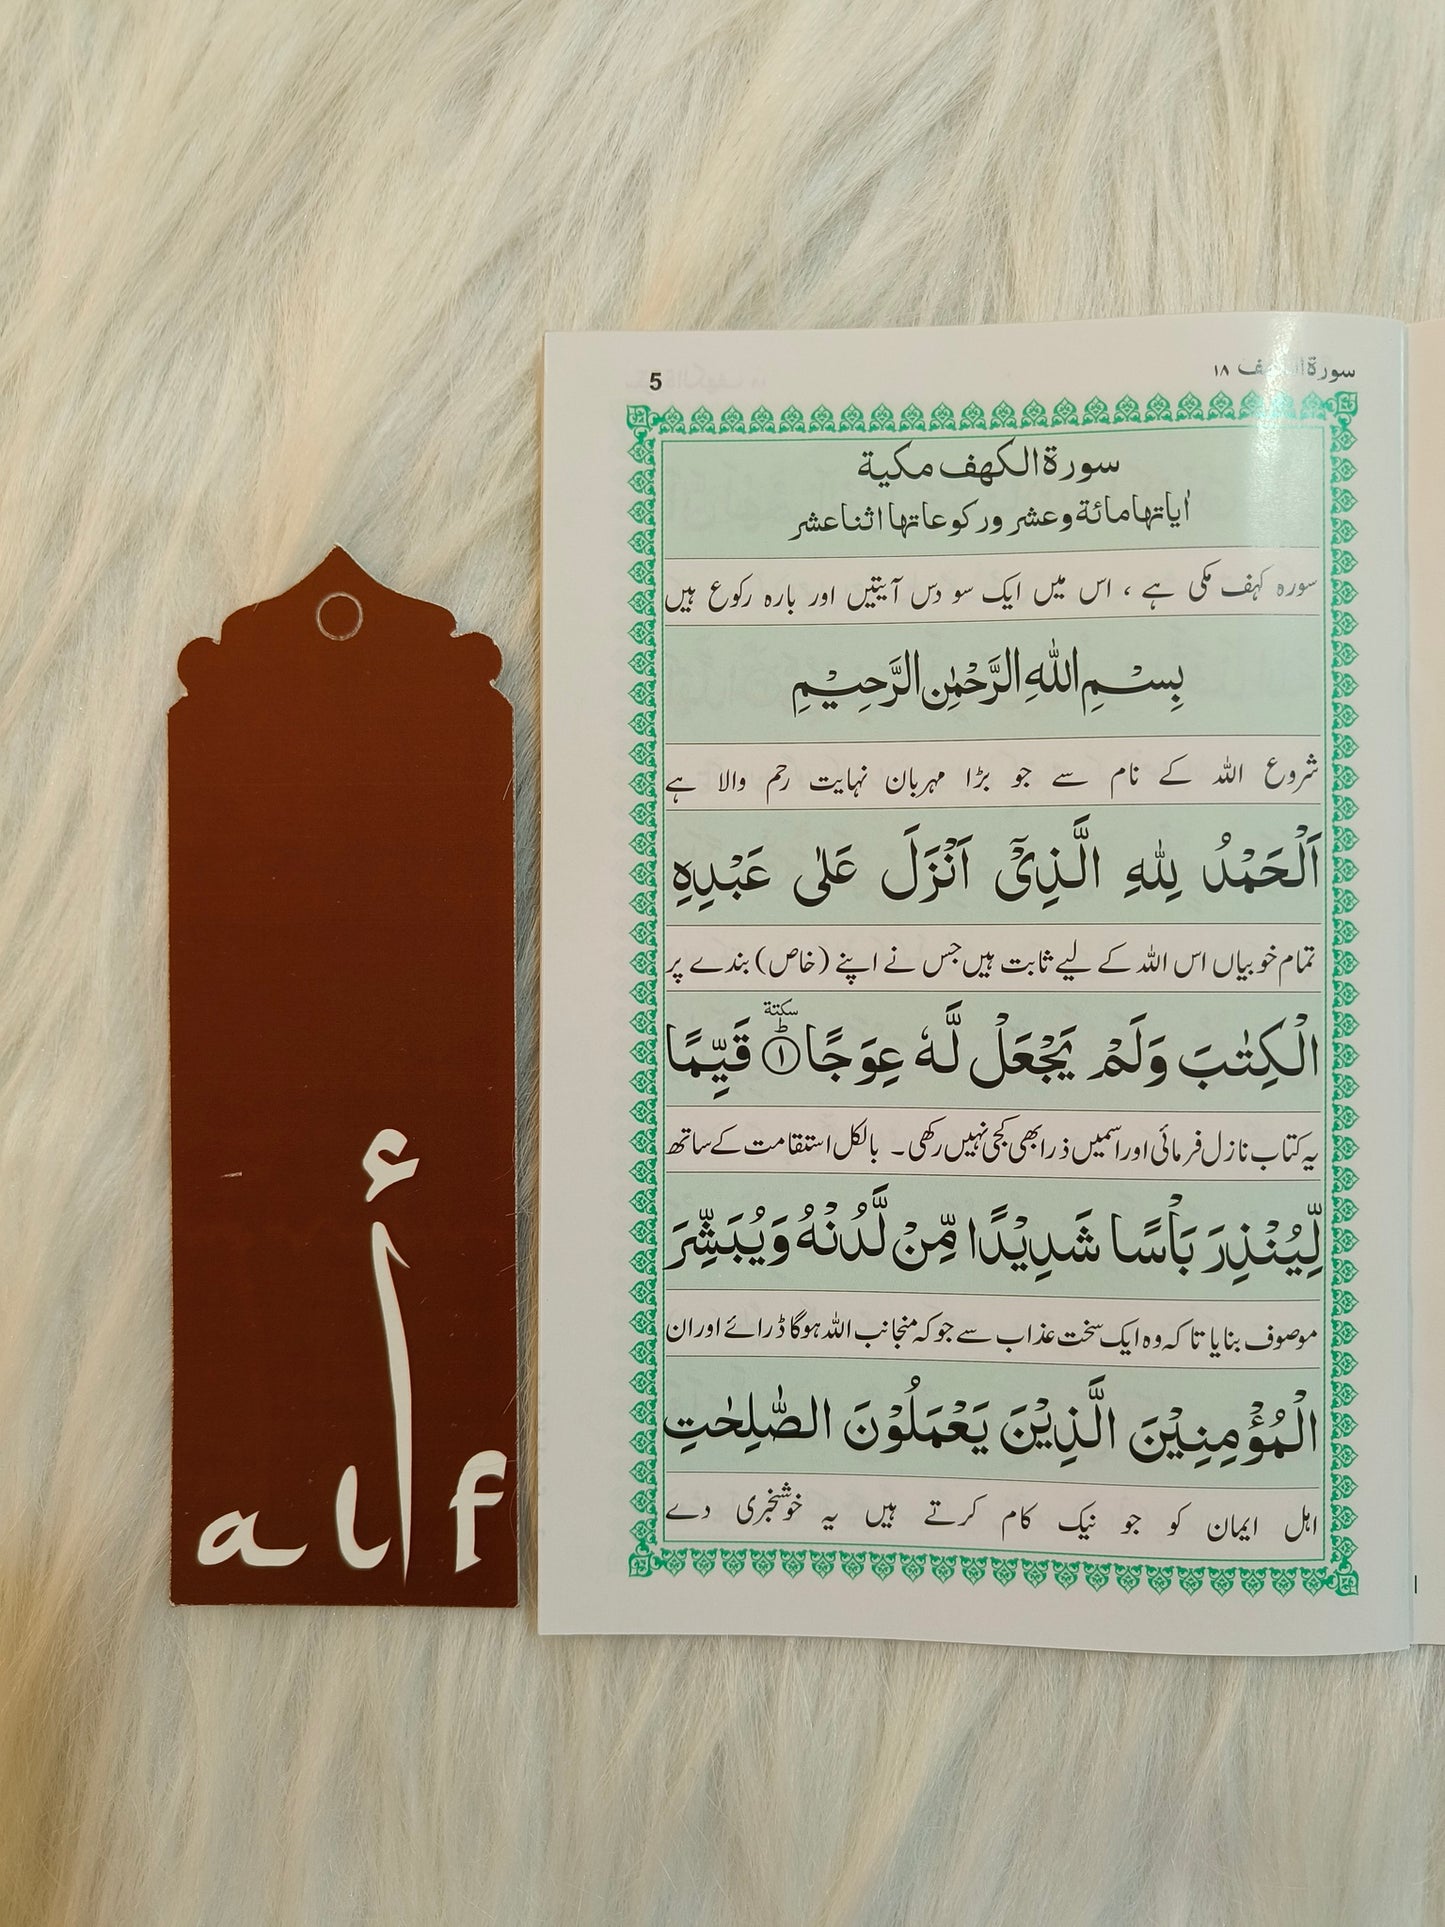 سورة الكهف ١٨
5
سورة الكهف مكية
اٰياتها مائة وعشر وركوعاتها اثنا عشر
سورہ کہف مکی ہے ، اس میں ایک سو دس آیتیں اور بارہ رکوع ہیں
بِسْمِ اللّٰهِ الرَّحْمٰنِ الرَّحِيْمِ
شروع اللہ کے نام سے جو بڑا مہربان نہایت رحم والا ہے
اَلْحَمْدُ لِلّٰهِ الَّذِيْٓ اَنْزَلَ عَلٰى عَبْدِهِ
تمام خوبیاں اس اللہ کے لیے ثابت ہیں جس نے اپنے (خاص) بندے پر
الْكِتٰبَ وَلَمْ يَجْعَلْ لَّهٗ عِوَجًا ؕ سكتة ① قَيِّمًا
یہ کتاب نازل فرمائی اور اسمیں ذرا بھی کجی نہیں رکھی۔ بالکل استقامت کے ساتھ
لِّيُنْذِرَ بَاْسًا شَدِيْدًا مِّنْ لَّدُنْهُ وَيُبَشِّرَ
موصوف بنایا تا کہ وہ ایک سخت عذاب سے جو کہ منجانب اللہ ہوگا ڈرائے اور ان
الْمُؤْمِنِيْنَ الَّذِيْنَ يَعْمَلُوْنَ الصّٰلِحٰتِ
اہل ایمان کو جو نیک کام کرتے ہیں یہ خوشخبری دے
أ
alf